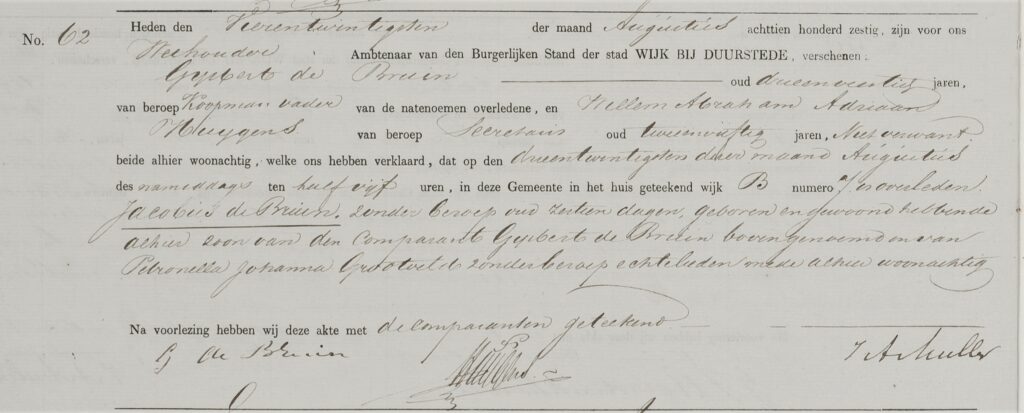 No. 62 Heden den Vierentwintigsten der maand Augustus achttien honderd zestig, zijn voor ons
Wethouder Ambtenaar van den Burgerlijken Stand der stad WIJK BIJ DUURSTEDE, verschenen:
Gysbert de Bruin oud drieenveertig jaren,
van beroep Koopman vader van de natenoemen overledene, en Willem Abraham Adriaan
Huygens van beroep Secretaris oud tweenvijftig jaren, Niet verwant
beide alhier woonachtig, welke ons hebben verklaard, dat op den drieentwintigsten dezer maand Augustus
des namiddags ten half vijf uren, in deze Gemeente in het huis geteekend wijk B numero is overleden
Jacobus de Bruin, zonder beroep oud zestien dagen, geboren en gewoond hebbende
alhier zoon van den Comparant Gysbert de Bruin bovengenoemd en van
Petronella Johanna Grootveld zonder beroep echtelieden mede alhier woonachtig
Na voorlezing hebben wij deze akte met de comparanten geteekend
G de Bruin J A Muller